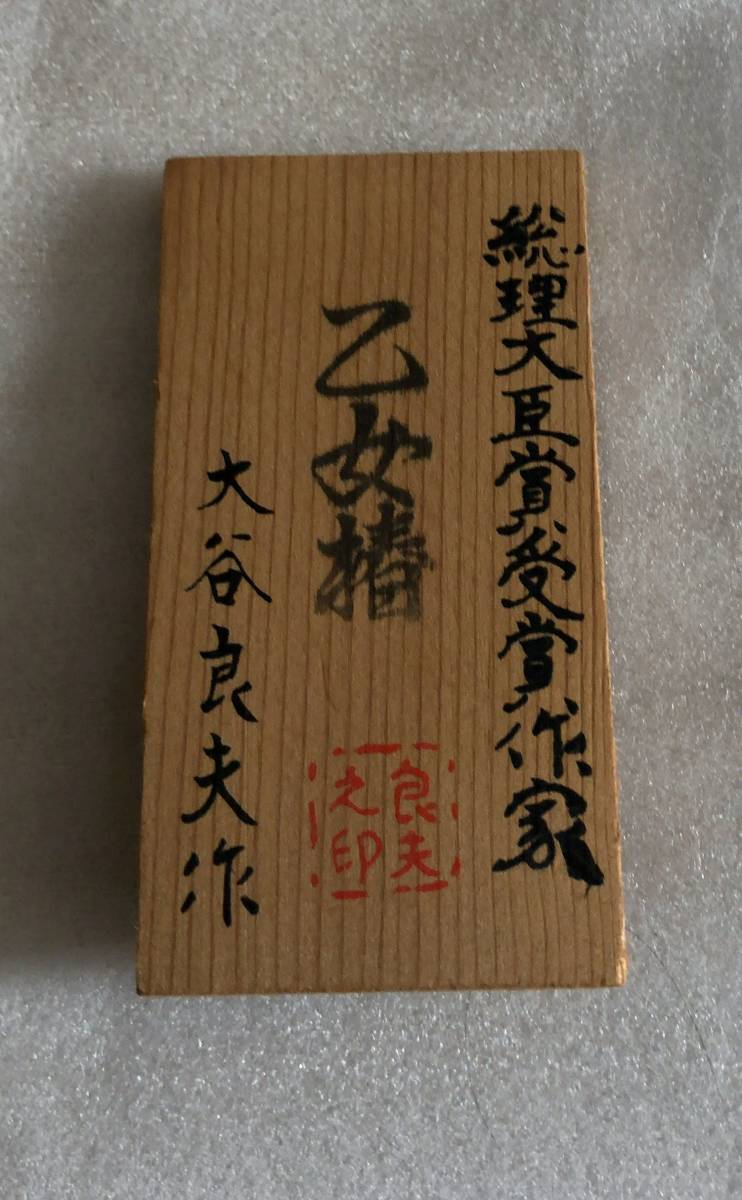 総理大臣賞受賞作家
乙女椿
良夫
之印
大谷良夫作